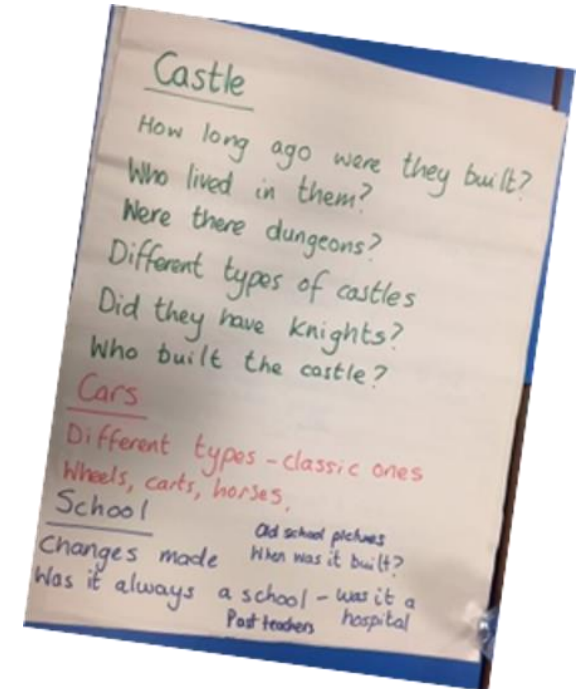 Castle
How long ago were they built?
Who lived in them?
Were there dungeons?
Different types of castles
Did they have knights?
Who built the castle?
Cars
Different types - classic ones
Wheels, carts, horses,
School
Old school pictures
changes made When was it built?
Was it always a school - was it a
hospital
Past teachers